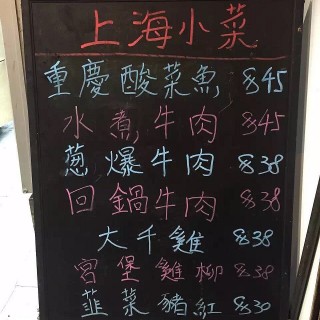 上海小菜
重慶酸菜魚 $45
水煮牛肉 $45
蔥爆牛肉 $38
回鍋牛肉 $38
大千雞 $38
宮堡雞柳 $38
韮菜豬紅 $30